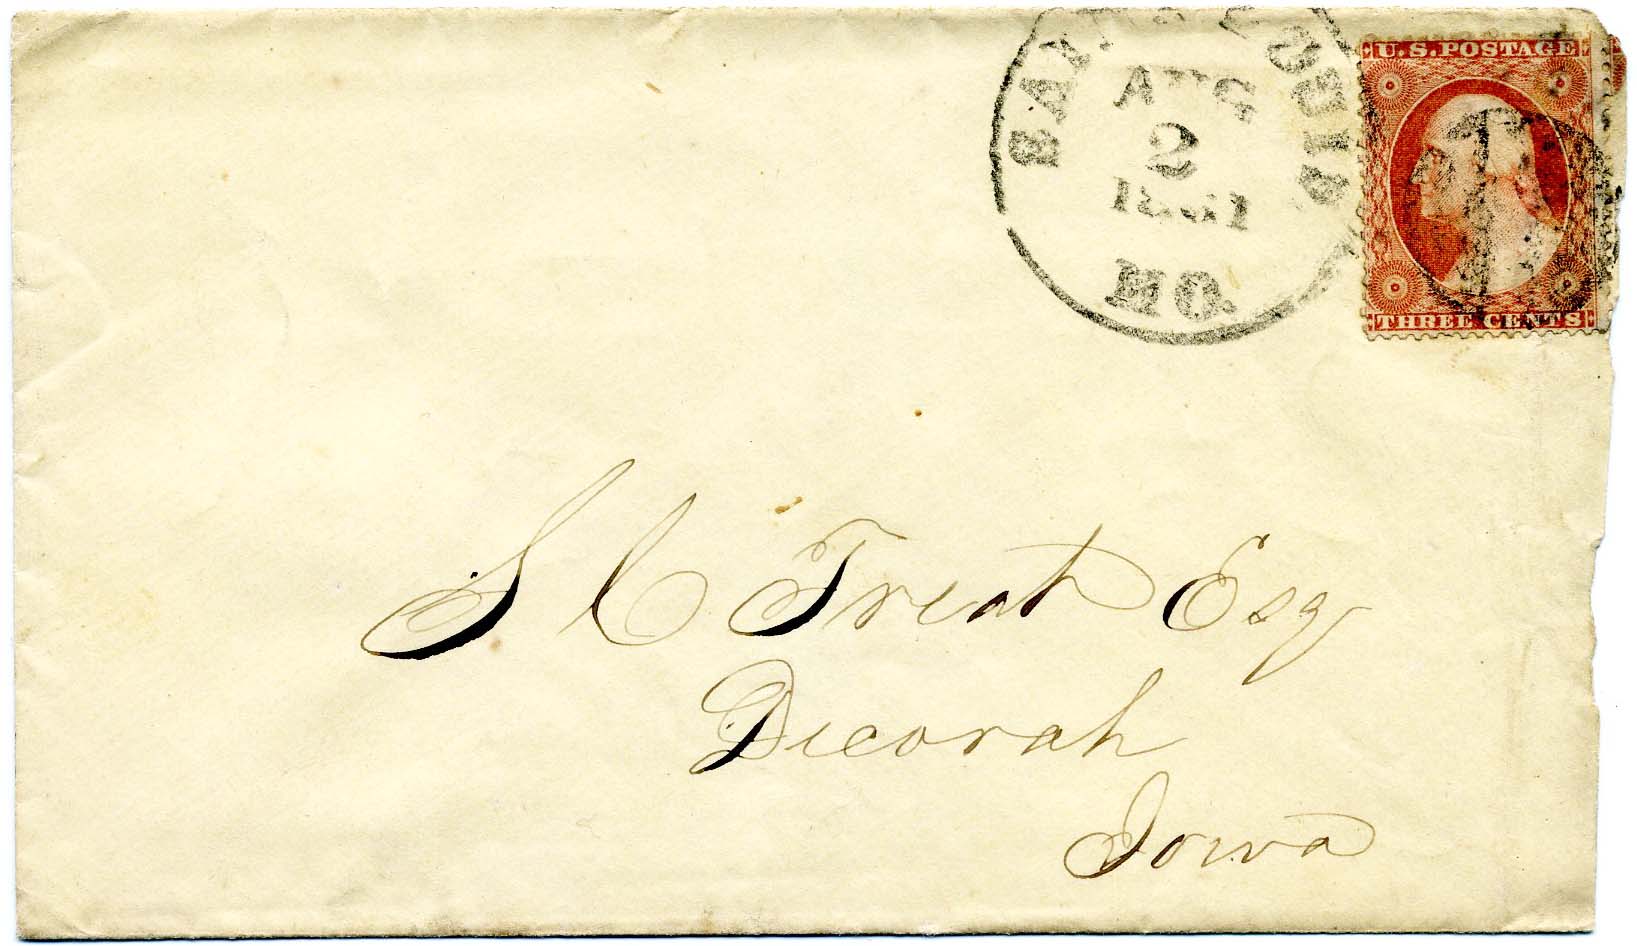 SAINT LOUIS
AUG
2
1861
MO.
U.S. POSTAGE
THREE CENTS
S C Treat Esq
Decorah
Iowa